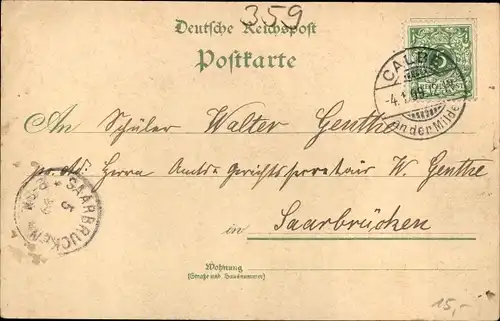 359
Deutsche Reichspost
Postkarte
5
CALBE
-4.1.99.12-1N
an der Milde
An Schüler Walter Genthe
pr. Ad: Herrn Amts Gerichtssecretair W. Genthe
SAARBRÜCKEN
5
in Saarbrücken
Wohnung
(Straße und Hausnummer)
15,-